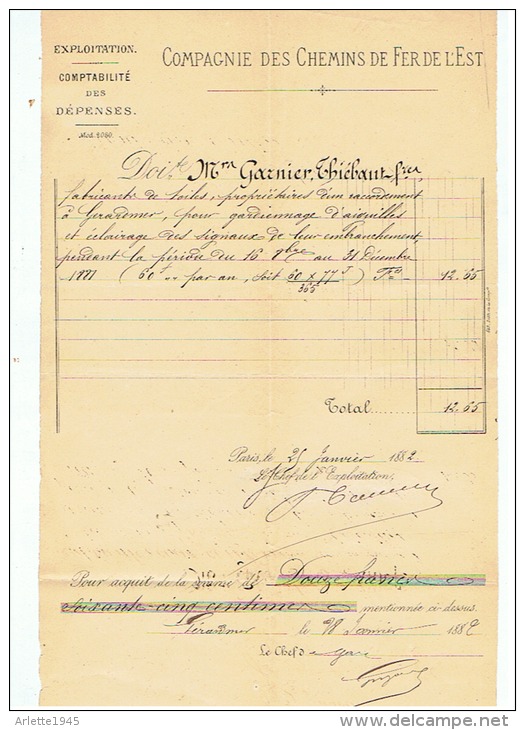 EXPLOITATION.
COMPTABILITÉ
DES
DÉPENSES.
Mod. 2060.
COMPAGNIE DES CHEMINS DE FER DE L'EST
Doivt Mrs Garnier, Thiébaut frères
fabricants de toiles, propriétaires d'un raccordement
à Gérardmer, pour gardiennage d'aiguilles
et éclairage des signaux de leur embranchement,
pendant la période du 16 8bre au 31 Décembre
1881 (60f " par an, soit 60 x 77j / 365 ) Fcs 12.65
Total 12.65
Paris, le 25 Janvier 1882
Le Chef de l'Exploitation,
Pour acquit de la somme de Douze francs
soixante-cinq centimes mentionnée ci-dessus.
Gérardmer le 28 Janvier 1882
Le Chef de gare
Arlette1945
delcampe.net